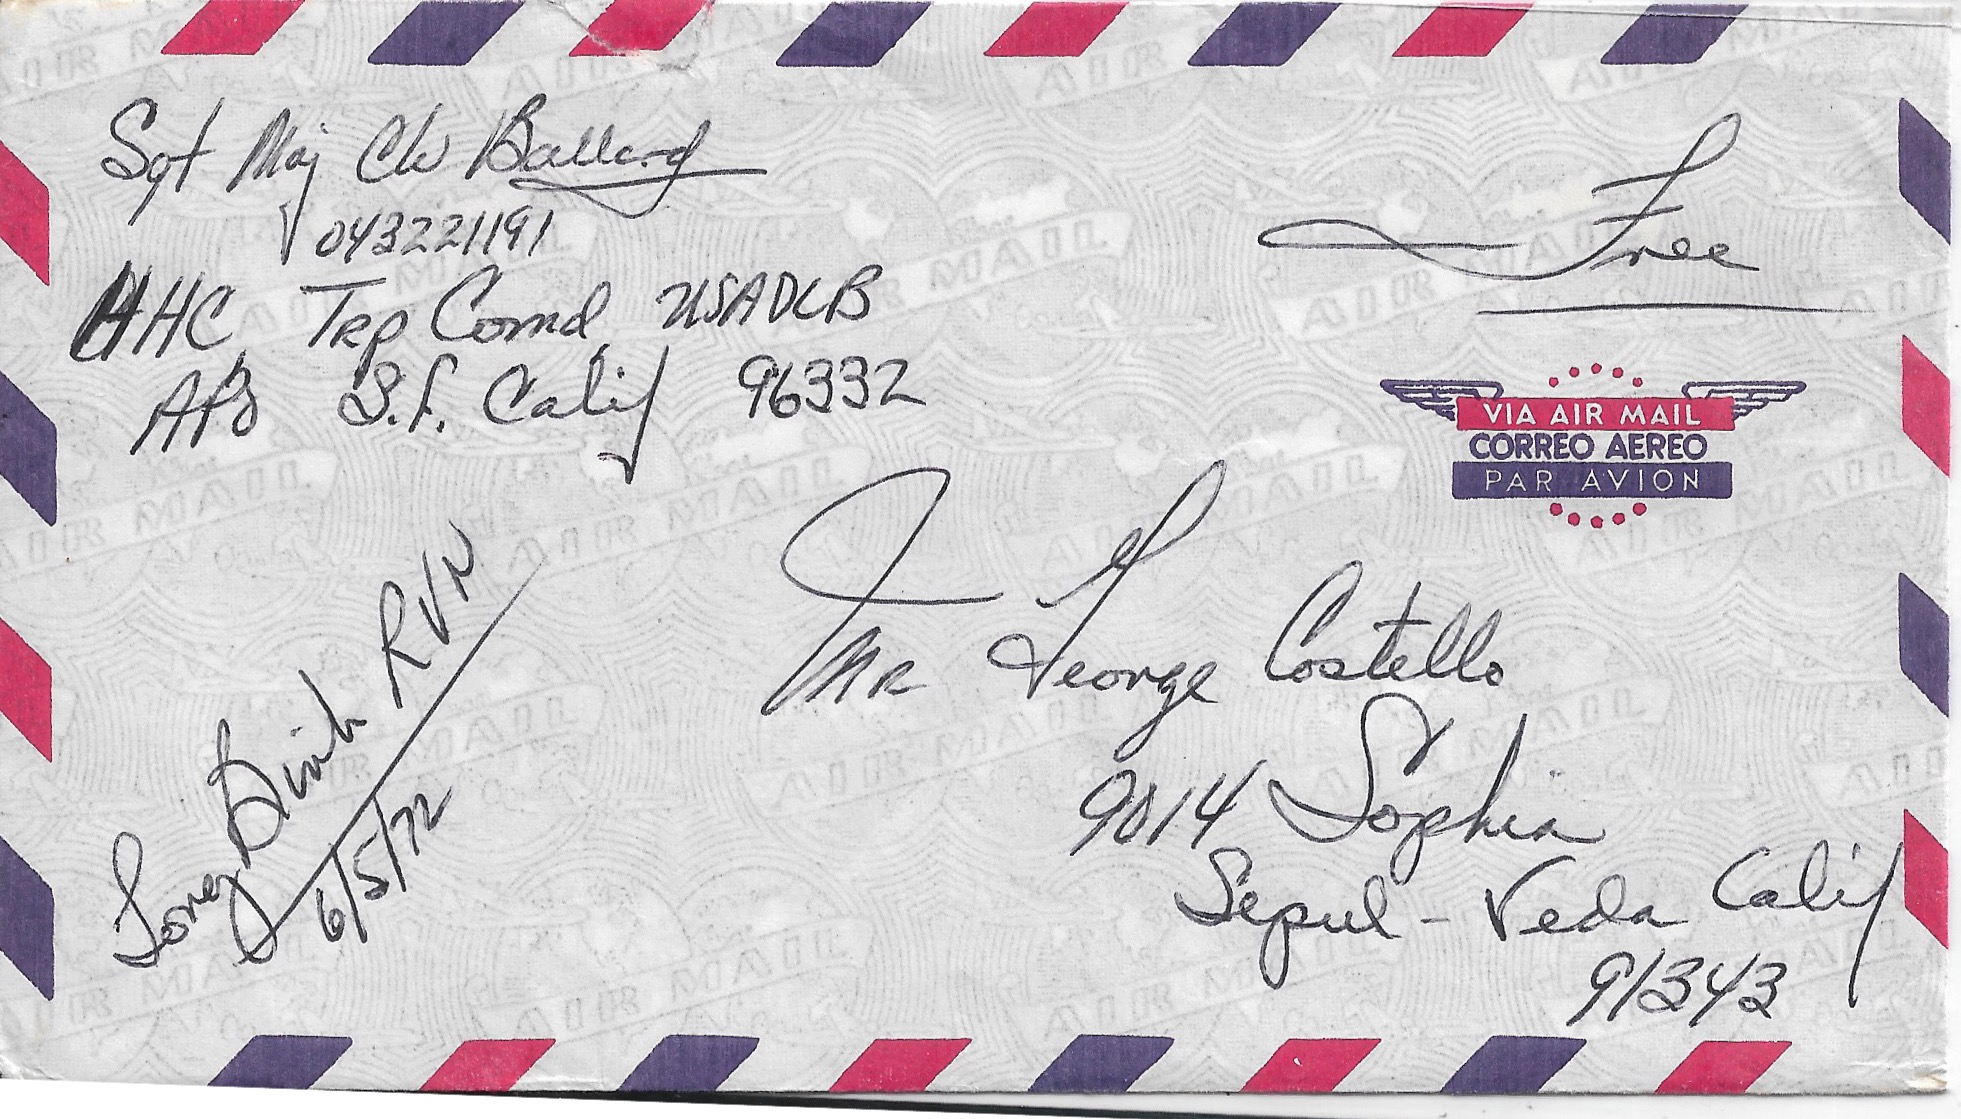 Sgt Maj CW Ballard
043221191
HHC Trp Comd, USADLB
APO S.F. Calif 96332
Free
VIA AIR MAIL
CORREO AEREO
PAR AVION
Long Binh RVN
6/5/72
Mr George Costello
9014 Sophia
Sepul-Veda Calif
91343